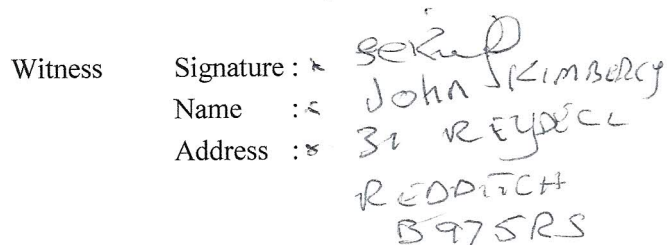 Witness Signature :
Name : John KIMBERLY
Address : 31
REDDITCH
B97 5RS